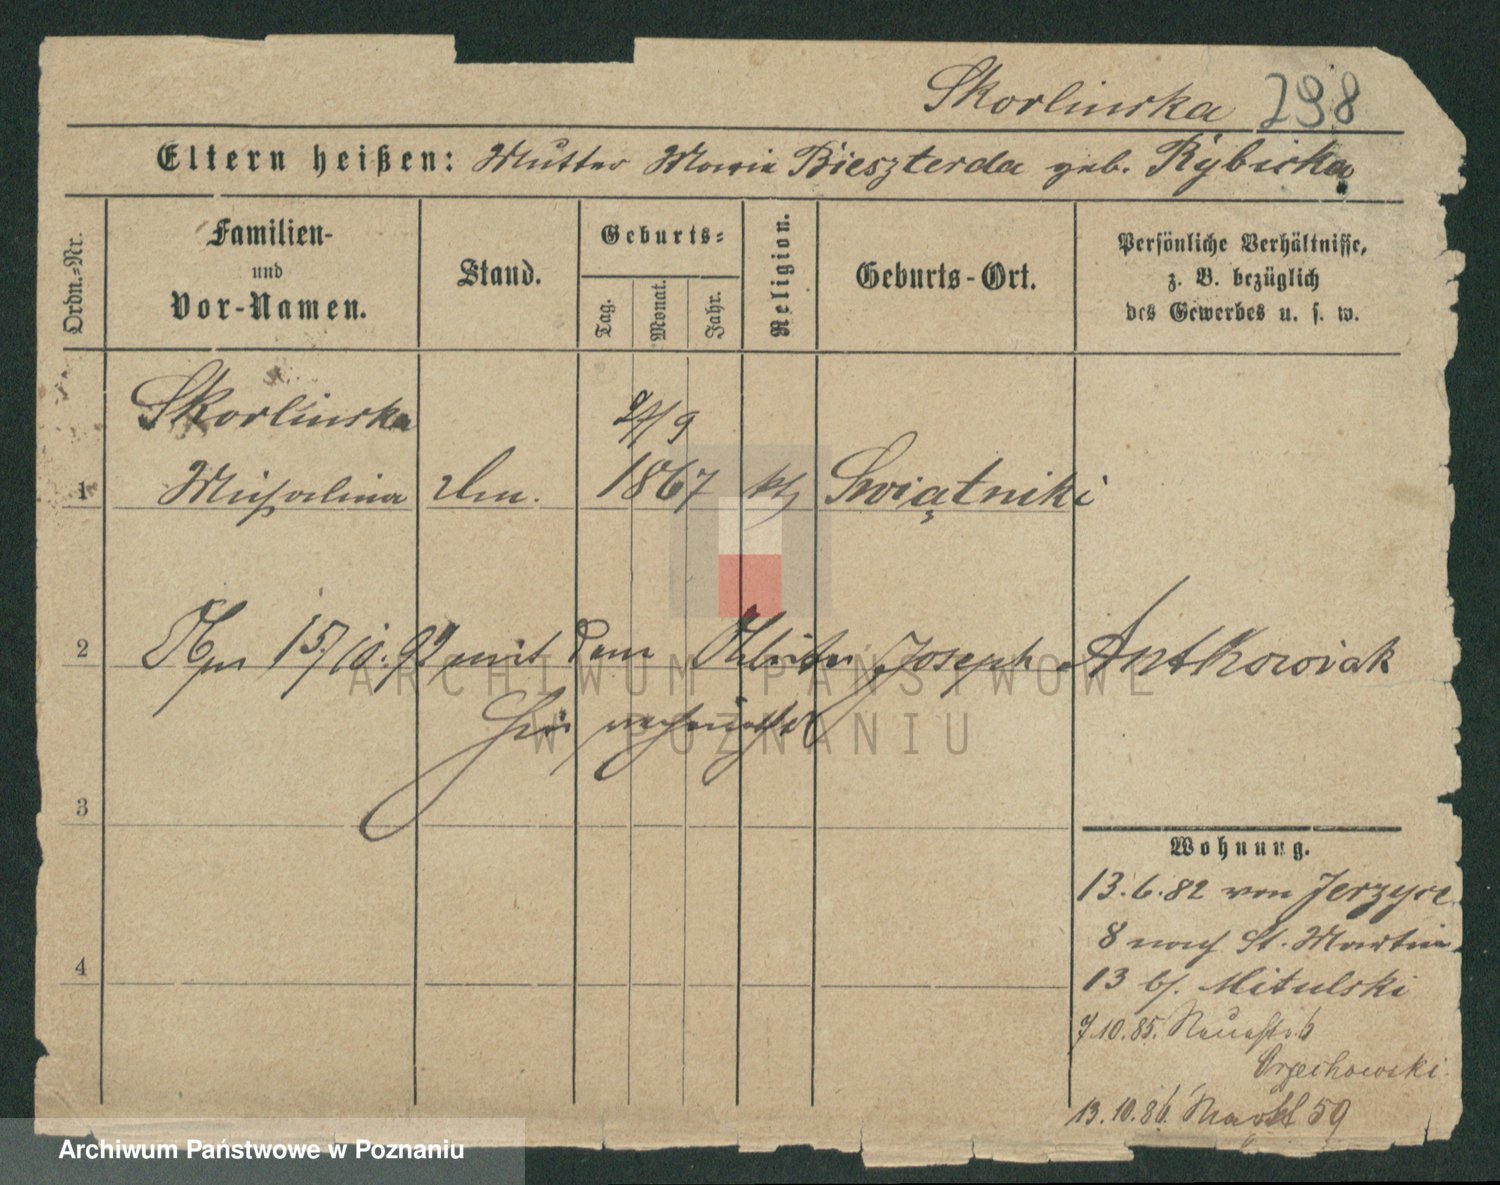 Skorlinska 298
Eltern heißen: Mutter Maria Bieszterda geb. Rybicka
Ordn.-Nr.
Familien-
und
Vor-Namen.
Stand.
Geburts-
Tag.
Monat.
Jahr.
Religion.
Geburts-Ort.
Persönliche Verhältnisse,
z. B. bezüglich
des Gewerbes u. s. w.
Skorlinska
1 Michalina 1867 kth Swiątniki
2 15/10. 92 mit dem Arbeiter Joseph Antkowiak
hier
3
4
Wohnung.
13.6.82 von Jerzyce
8 nach St. Martin
13 b/. Mitulski
7.10.85. Neuestr. 6
Orzechowski
13.10.86. Markt 59
ARCHIWUM PAŃSTWOWE
W POZNANIU
Archiwum Państwowe w Poznaniu